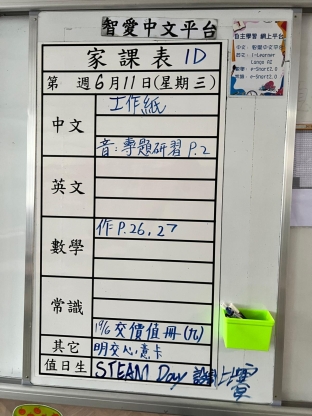 智愛中文平台
家課表 1D
第 週6月11日(星期三)
中文
工作紙
音:專題研習 P.2
英文
數學
作 P.26,27
常識
19/6 交價值冊(九)
其它
明交心意卡
值日生
STEAM Day
自主學習 網上平台
中文:智愛中文平台
i-Learner
e-Smart2.0
e-Smart2.0